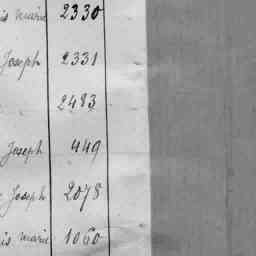 is marie 2330
Joseph 2331
2483
Joseph 449
Joseph 2078
is marie 1060